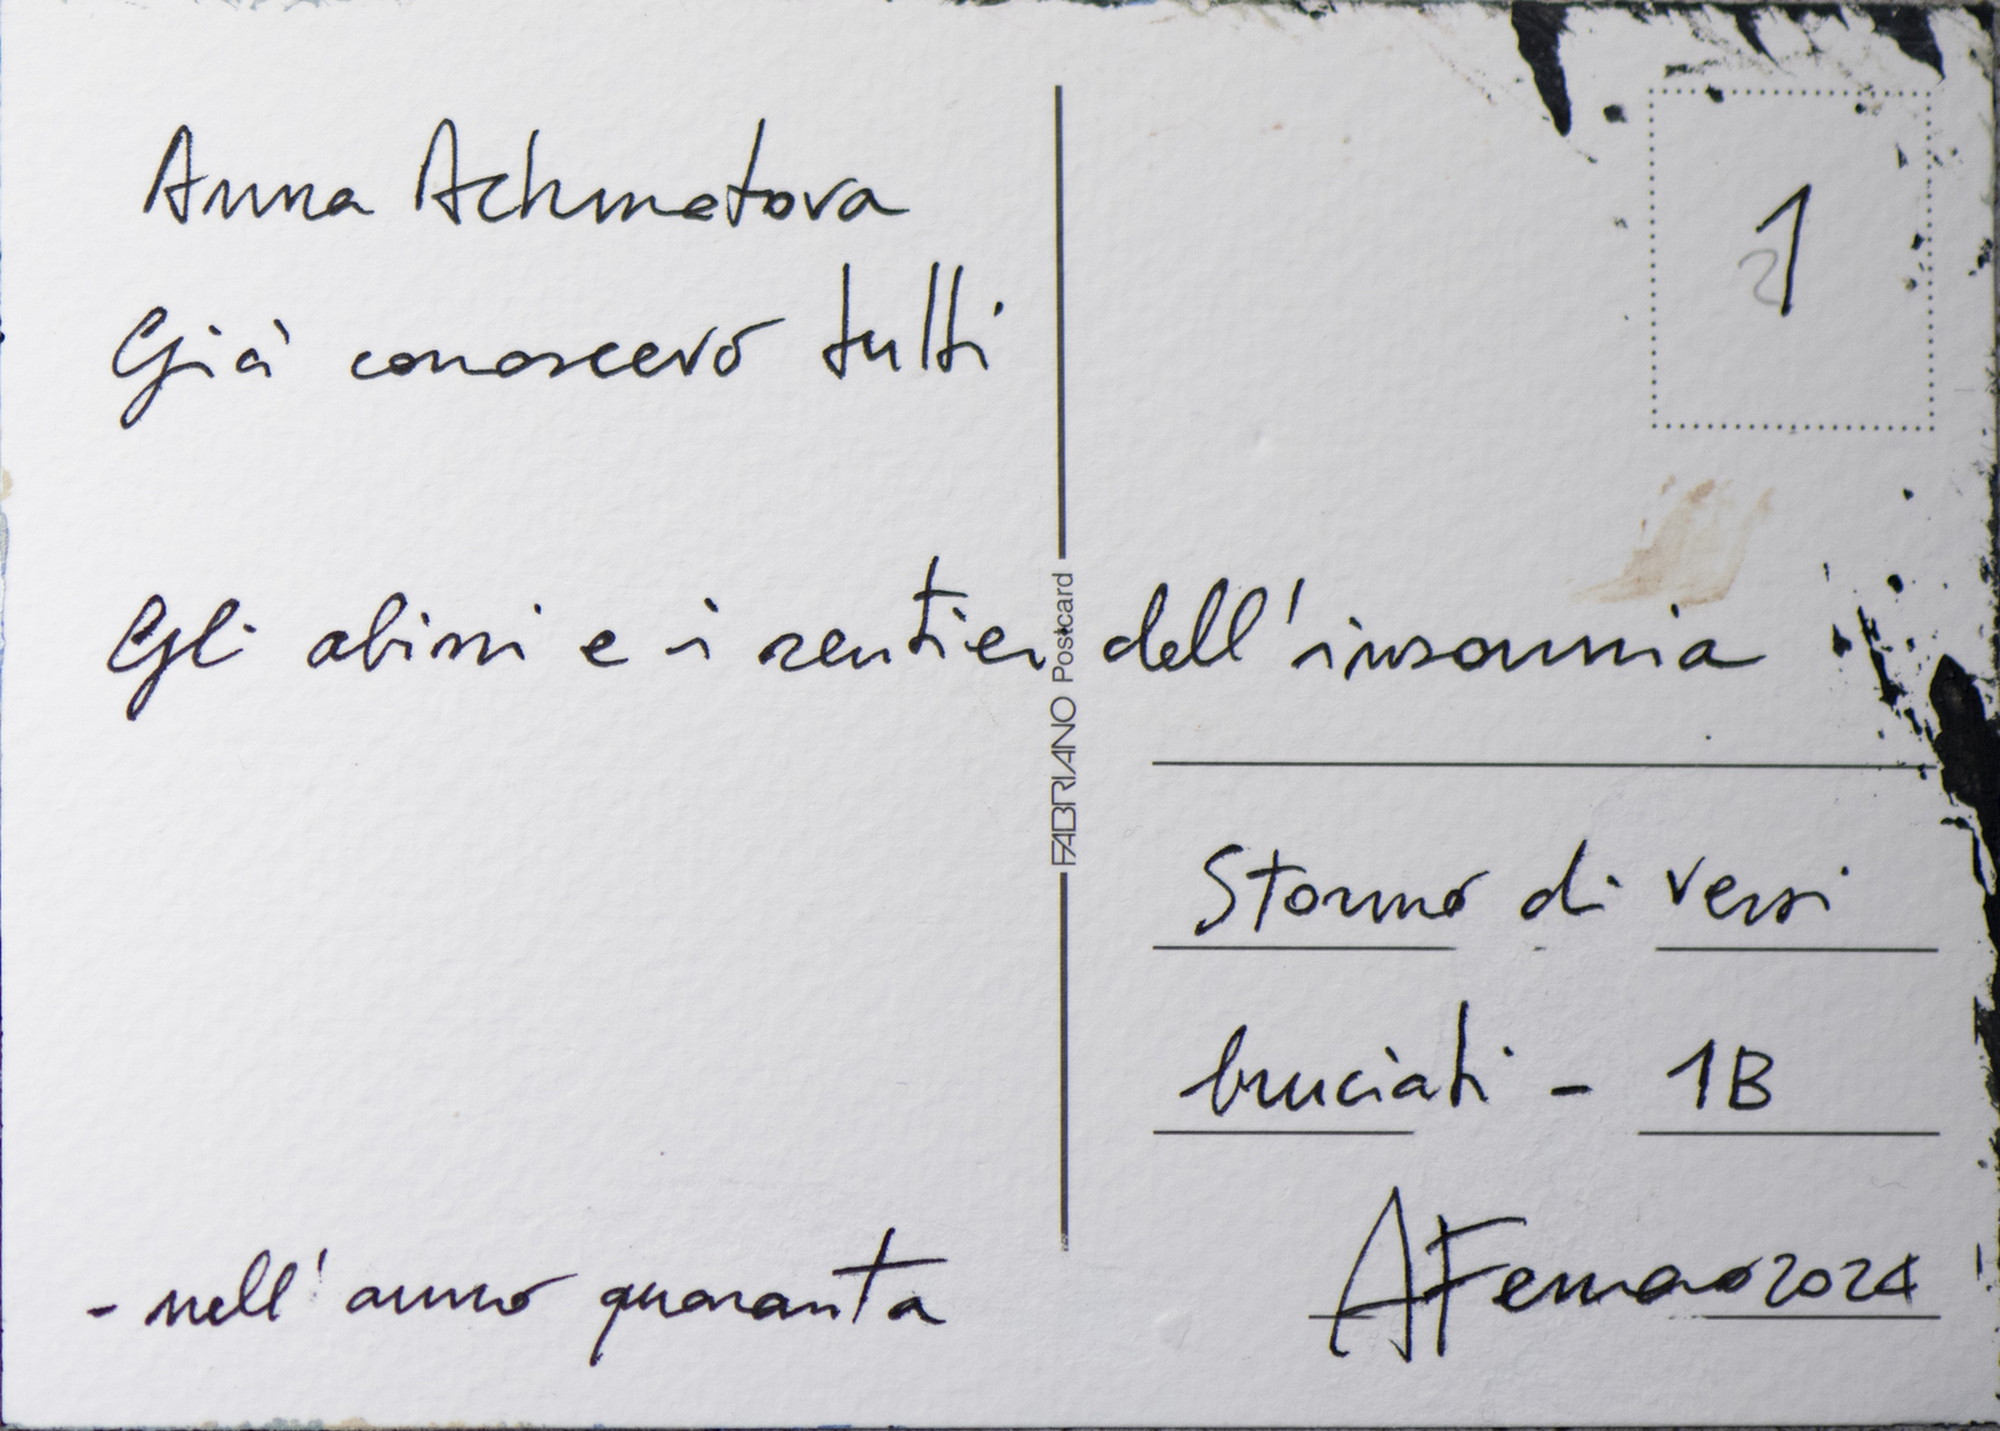 Anna Achmatova
Già conoscevo tutti
Gli abissi e i sentier dell'insonnia
- nell'anno quaranta
FABRIANO Postcard
1
2
Stormo di versi
bruciati - 1B
2024